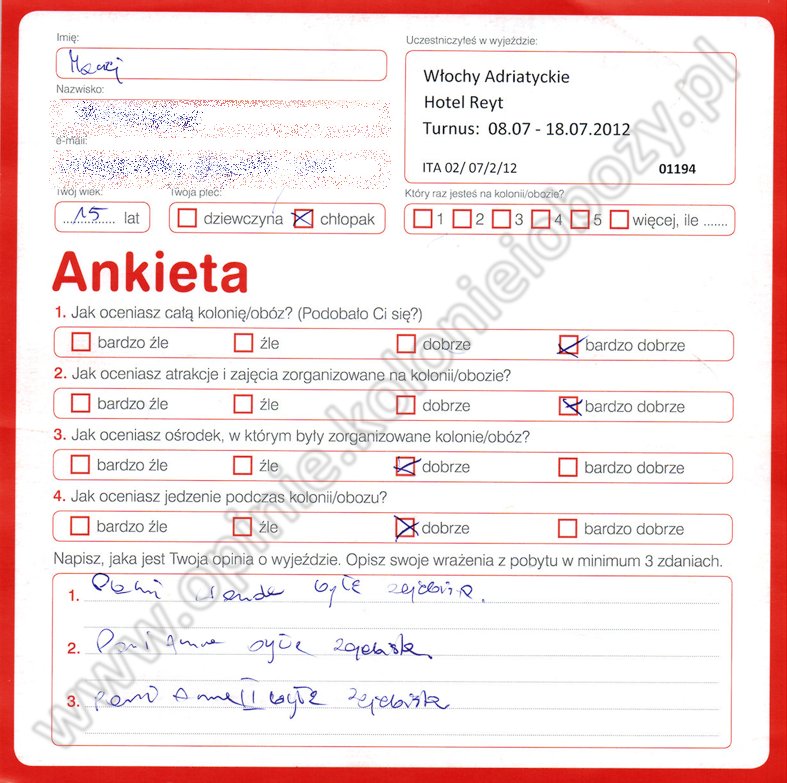 Imię:
Maciej
Nazwisko:
e-mail:
Twój wiek:
15 lat
Twoja płeć:
dziewczyna chłopak
Uczestniczyłeś w wyjeździe:
Włochy Adriatyckie
Hotel Reyt
Turnus: 08.07 - 18.07.2012
ITA 02/ 07/2/12 01194
Który raz jesteś na kolonii/obozie?
1 2 3 4 5 więcej, ile .......
Ankieta
1. Jak oceniasz całą kolonię/obóz? (Podobało Ci się?)
bardzo źle źle dobrze bardzo dobrze
2. Jak oceniasz atrakcje i zajęcia zorganizowane na kolonii/obozie?
bardzo źle źle dobrze bardzo dobrze
3. Jak oceniasz ośrodek, w którym były zorganizowane kolonie/obóz?
bardzo źle źle dobrze bardzo dobrze
4. Jak oceniasz jedzenie podczas kolonii/obozu?
bardzo źle źle dobrze bardzo dobrze
Napisz, jaka jest Twoja opinia o wyjeździe. Opisz swoje wrażenia z pobytu w minimum 3 zdaniach.
1. Pani była zajebista.
2. Pani Anna była zajebista
3. Pani Anna II była zajebista
www.opinie.kolonieiobozy.pl